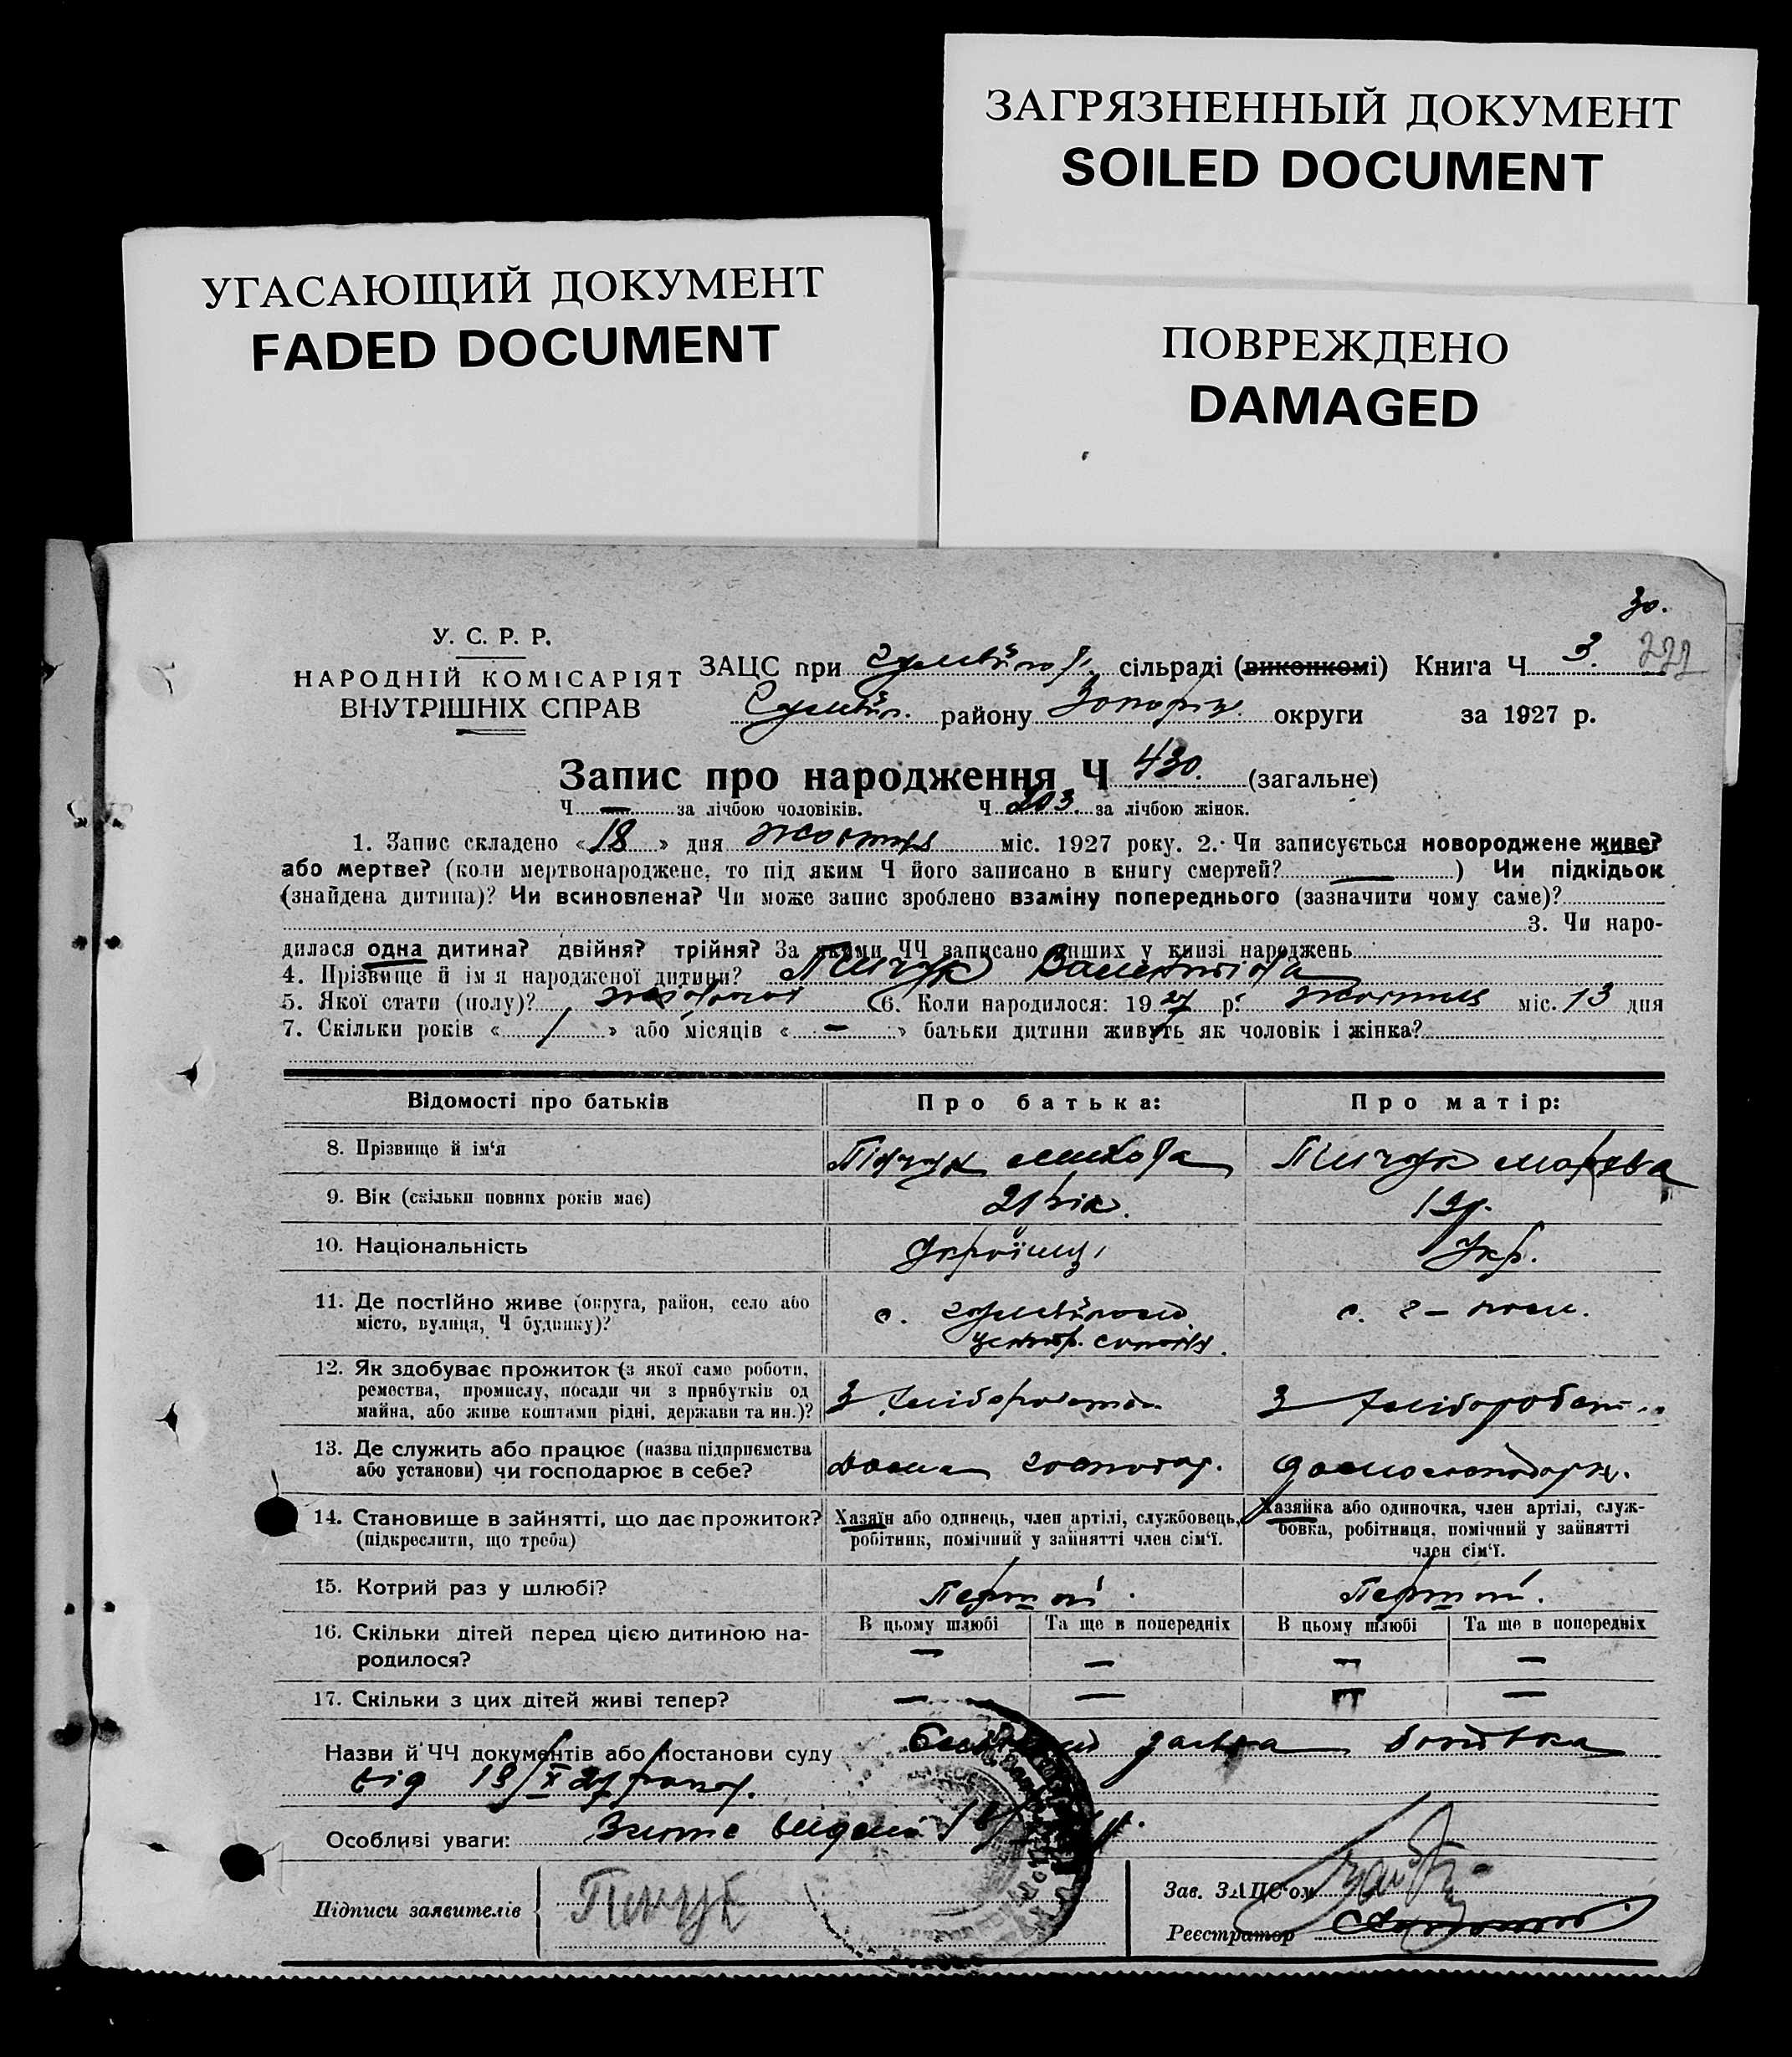 ЗАГРЯЗНЕННЫЙ ДОКУМЕНТ
SOILED DOCUMENT
УГАСАЮЩИЙ ДОКУМЕНТ
FADED DOCUMENT
ПОВРЕЖДЕНО
DAMAGED
30.
У. С. Р. Р.
НАРОДНІЙ КОМІСАРІЯТ
ВНУТРІШНІХ СПРАВ
ЗАЦС при сільраді (виконкомі) Книга Ч 3. 222
району Запоріз. округи за 1927 р.
Запис про народження Ч 430. (загальне)
Ч — за лічбою чоловіків. Ч 203 за лічбою жінок.
1. Запис складено «18» дня жовтня міс. 1927 року. 2. Чи записується новороджене живе?
або мертве? (коли мертвонароджене, то під яким Ч його записано в книгу смертей? — ) Чи підкідьок
(знайдена дитина)? Чи всиновлена? Чи може запис зроблено взаміну попереднього (зазначити чому саме)?
3. Чи наро-
дилася одна дитина? двійня? трійня? За якими ЧЧ записано инших у книзі народжень
4. Прізвище й ім'я народженої дитини? Пичук Валентіна
5. Якої стати (полу)? жіночої 6. Коли народилося: 1927 р. жовтня міс. 13 дня
7. Скільки років « 1 » або місяців « — » батьки дитини живуть як чоловік і жінка?
Відомості про батьків Про батька: Про матір:
8. Прізвище й ім'я Пичук Микола Пичук Марфа
9. Вік (скільки повних років має) 21 рік. 19 р.
10. Національність Україн. Укр.
11. Де постійно живе (округа, район, село або
місто, вулиця, Ч будинку)? с. с.
12. Як здобуває прожиток (з якої саме роботи,
ремества, промислу, посади чи з прибутків од
майна, або живе коштами рідні, держави та ин.)? З хліборобства З хлібороб.
13. Де служить або працює (назва підприємства
або установи) чи господарює в себе? Дома господар. домогосподарк.
14. Становище в зайнятті, що дає прожиток?
(підкреслити, що треба)
Хазяїн або одинець, член артілі, службовець,
робітник, помічний у зайнятті член сім'ї.
Хазяйка або одиночка, член артілі, служ-
бовка, робітниця, помічний у зайнятті
член сім'ї.
15. Котрий раз у шлюбі? Перший. Перший.
16. Скільки дітей перед цією дитиною на-
родилося?
В цьому шлюбі Та ще в попередніх В цьому шлюбі Та ще в попередніх
— — — —
17. Скільки з цих дітей живі тепер? — — — —
Назви й ЧЧ документів або постанови суду заява батька
від 18/X 27 року.
Особливі уваги: Витяг видано 18/X
Підписи заявителів Пичук
Зав. ЗАЦС'ом
Реєстратор